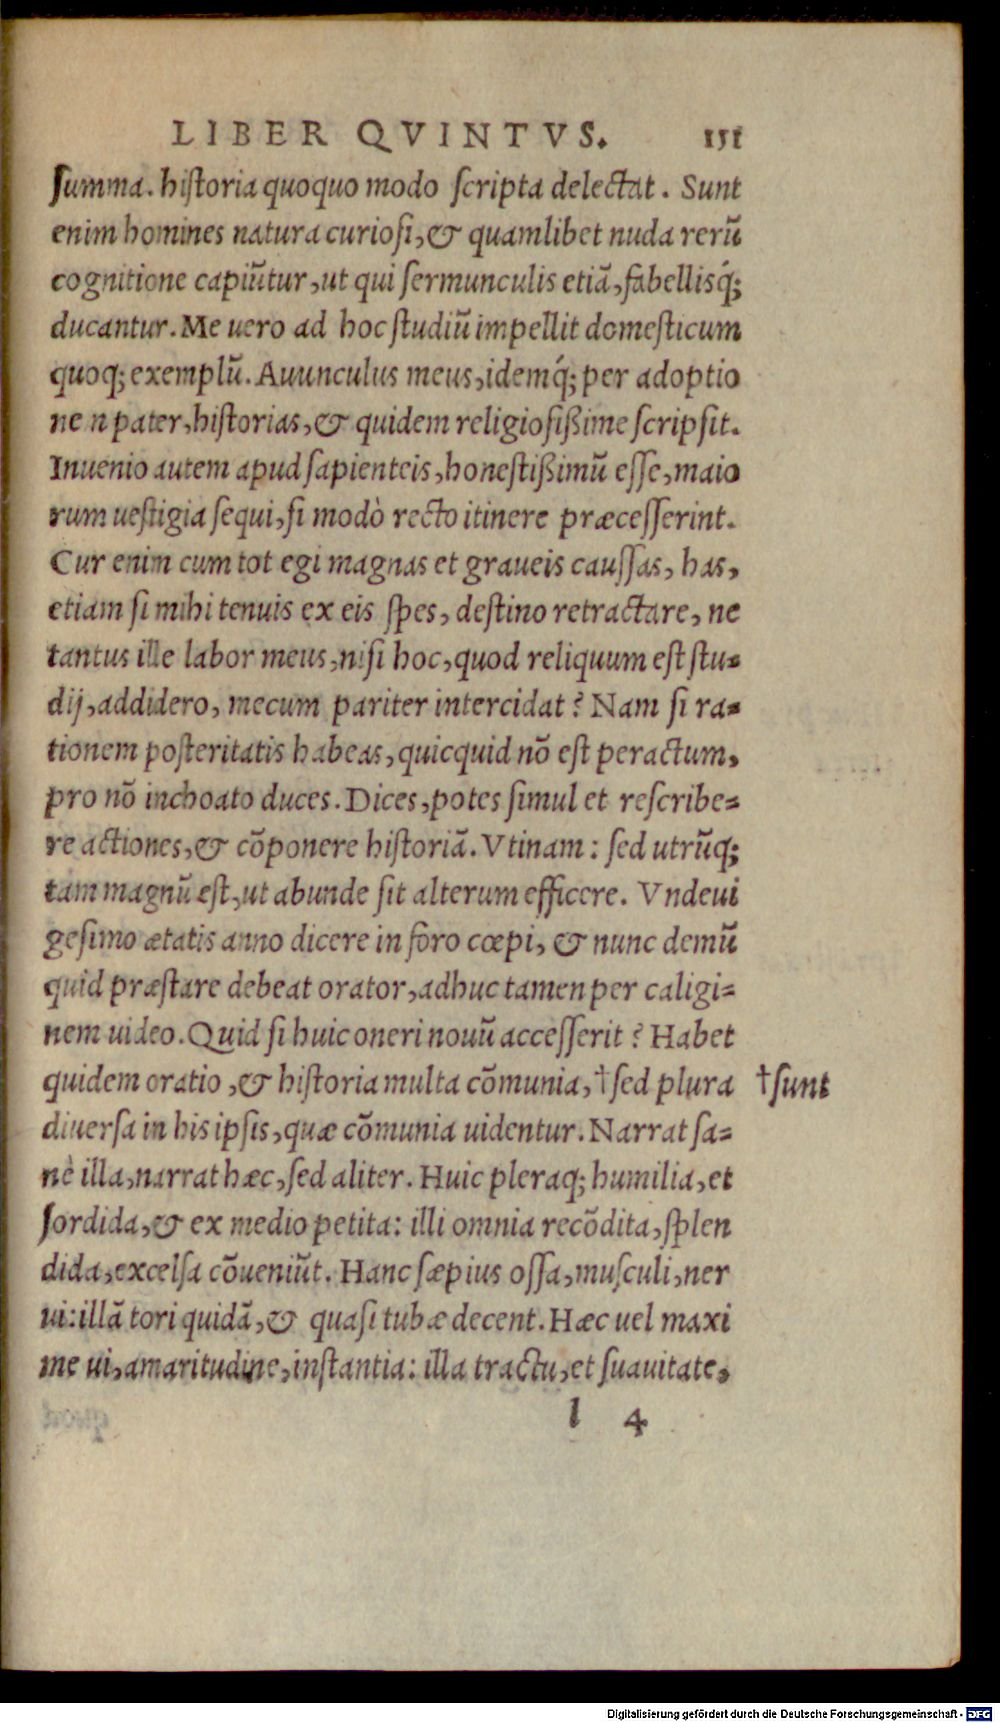 LIBER QVINTVS. 151
ſumma. hiſtoria quoquo modo ſcripta delectat. Sunt
enim homines natura curioſi, & quamlibet nuda rerũ
cognitione capiũtur, ut qui ſermunculis etiã, fabellisq́;
ducantur. Me uero ad hoc ſtudiũ impellit domeſticum
quoq; exemplũ. Auunculus meus, idemq́; per adoptio
ne n pater, hiſtorias, & quidem religioſißime ſcripſit.
Inuenio autem apud ſapienteis, honeſtißimũ eſſe, maio
rum ueſtigia ſequi, ſi modò recto itinere præceſſerint.
Cur enim cum tot egi magnas et graueis cauſſas, has,
etiam ſi mihi tenuis ex eis ſpes, deſtino retractare, ne
tantus ille labor meus, niſi hoc, quod reliquum eſt ſtu=
dij, addidero, mecum pariter intercidat? Nam ſi ra=
tionem poſteritatis habeas, quicquid nõ eſt peractum,
pro nõ inchoato duces. Dices, potes ſimul et reſcribe=
re actiones, & cõponere hiſtoriã. Vtinam: ſed utrũq;
tam magnũ eſt, ut abunde ſit alterum efficere. Vndeui
geſimo ætatis anno dicere in foro cœpi, & nunc demũ
quid præſtare debeat orator, adhuc tamen per caligi=
nem uideo. Quid ſi huic oneri nouũ acceſſerit? Habet
quidem oratio, & hiſtoria multa cõmunia, †ſed plura †ſunt
diuerſa in his ipſis, quæ cõmunia uidentur. Narrat ſa=
nè illa, narrat hæc, ſed aliter. Huic pleraq; humilia, et
ſordida, & ex medio petita: illi omnia recõdita, ſplen
dida, excelſa cõueniũt. Hanc ſæpius oſſa, muſculi, ner
ui: illã tori quidã, & quaſi tubæ decent. Hæc uel maxi
me ui, amaritudine, inſtantia: illa tractu, et ſuauitate,
quod l 4
Digitalisierung gefördert durch die Deutsche Forschungsgemeinschaft - DFG